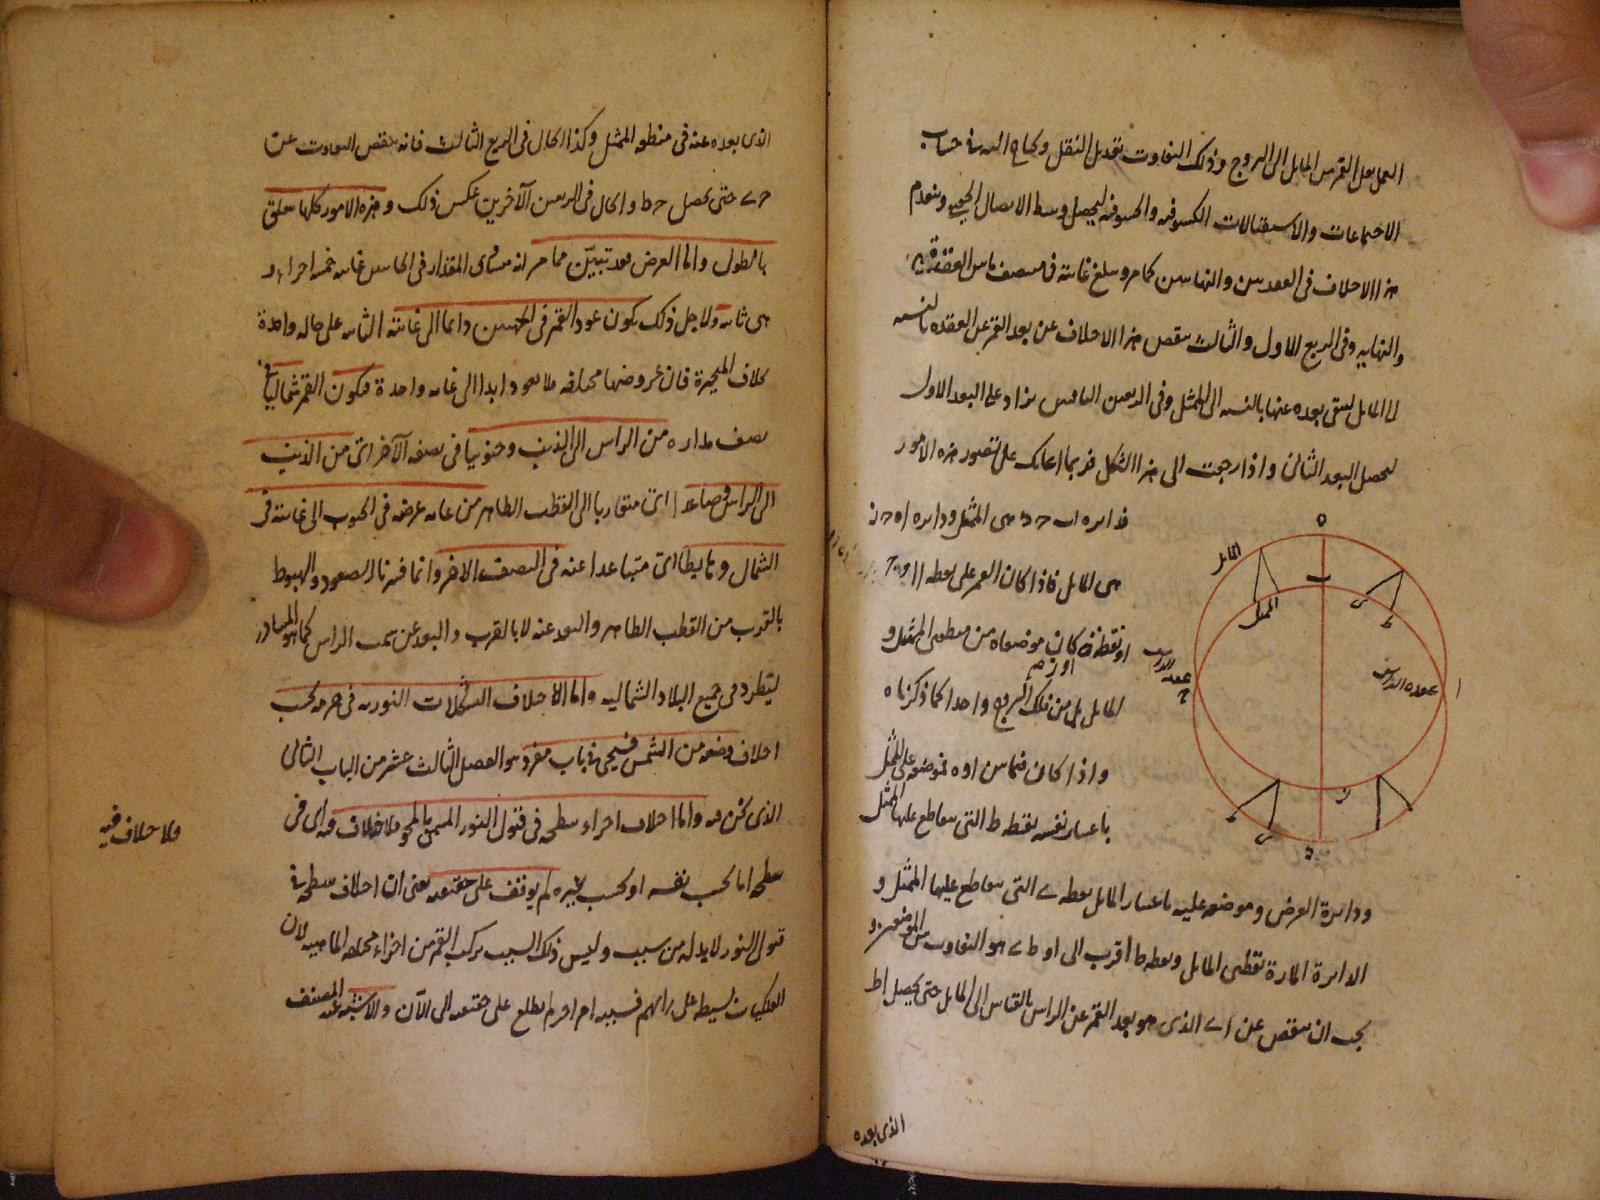 العمل نقل القمر من المايل الى البروج وذلك التفاوت تعديل النقل و يحتاج اليه فى حساب
الاجتماعات والاستقبالات الكسوفيه والخسوفيه ليحصل وسط الاتصال الحقيقى و ينعدم
هذا الاختلاف فى العقدتين والنهايتين كما مر و يبلغ غايته فى منتصف ما بين العقدة
والنهايه وفى الربع الاول والثالث ينقص هذا الاختلاف عن بعد القمر عن العقده بالنسبه
الى المايل ليبقى بعده عنها بالنسبه الى الممثل وفى الربعين الباقيين يزاد على البعد الاول
ليحصل البعد الثانى واذا رجعت الى هذا الشكل فربما اعانك على تصور هذه الامور
فدايره ا ب ح د هى الممثل ودايره ا ه ح ز
هى المايل فاذا كان القمر على نقطه ا او ح
او نقطة ه كان موضعاه من منطقه الممثل و
او ز
المايل بل من فلك البروج واحدا كما ذكرناه
واذا كان فيما بين ا و ه فموضعه على الممثل
باعتبار نفسه نقطه ط التى يتقاطع عليها الممثل
ودايرة العرض وموضعه عليه باعتبار المايل نقطه ى التى يتقاطع عليها الممثل و
الدايرة المارة بقطبى المايل ونقطه ط اقرب الى ا و ط ى هو التفاوت بين الموضعين و
يجب ان ينقص عن ا ى الذى هو بعد القمر عن الراس بالقياس الى المايل حتى يحصل ا ط
الذى بعده
ه
المايل
ب
الممثل
عقده الراس
ا
عقده الذنب
ح
د
الذى بعده عنه فى منطقه الممثل وكذا الحال فى الربع الثالث فانه ينقص التفاوت عن
ح ى حتى يحصل ح ط والحال فى الربعين الآخرين عكس ذلك وهذه الامور كلها تتعلق
بالطول واما العرض فقد تبيّن مما مر انه متساوى المقدار فى الجانبين غايته خمسة اجزاء و
هى ثابته ولاجل ذلك يكون عود القمر فى الجهتين دايما الى غايته الثابته على حاله واحدة
بخلاف المتحيرة فان عروضها مختلفه فلا يعود ابدا الى غايه واحدة فيكون القمر شماليا فى
نصف مداره من الراس الى الذنب وجنوبيا فى نصفه الآخر اى من الذنب
الى الراس وصاعدا اى متقاربا الى القطب الظاهر من غايه عرضه فى الجنوب الى غايته فى
الشمال وهابطا اى متباعدا عنه فى النصف الاخر وانما فسرنا الصعود والهبوط
بالقرب من القطب الظاهر والبعد عنه لا بالقرب والبعد عن سمت الراس كما هو المتبادر
ليطرد فى جميع البلاد الشماليه واما الاختلاف التشكلات النوريه فى جرمه بحسب
اختلاف وضعه من الشمس فسيجى فى باب مفرد هو الفصل الثالث عشر من الباب الثانى
الذى نحن فيه واما اختلاف اجزاء سطحه فى قبول النور المسمى بالمحو فلا خلاف فيه اى فى
سطحه اما بحسب نفسه او بحسب غيره لم يوقف على حقيقته يعنى ان اختلاف سطحه فى
قبول النور لا بد له من سبب وليس ذلك السبب تركب القمر من اجزاء مختلفه الماهيه لان
الفلكيات بسيطه على رايهم فسببه امر اخر لم يطلع على حقيقته الى الآن والاشبه عند المصنف
فلا خلاف فيه